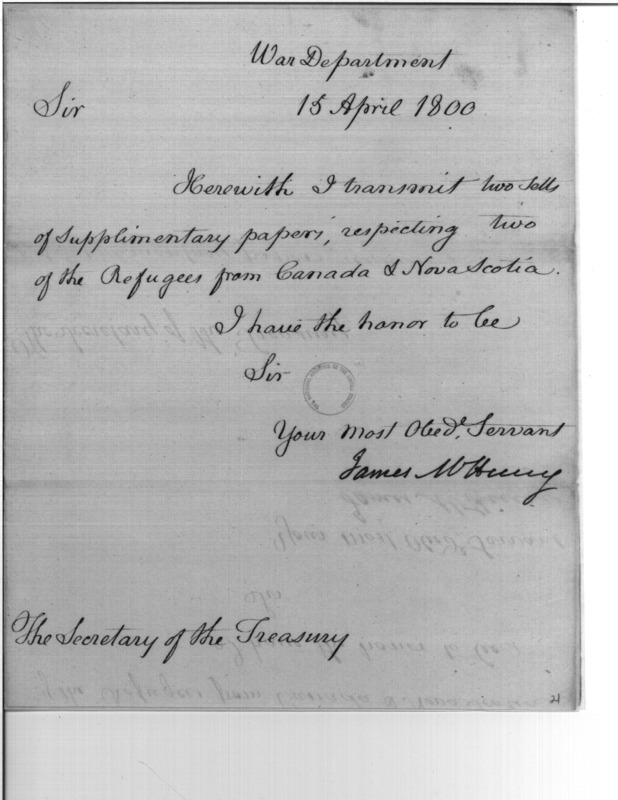 War Department
Sir 15 April 1800
Herewith I transmit two setts
of supplimentary papers, respecting two
of the Refugees from Canada & Nova Scotia.
I have the honor to be
Sir
Your most Obedt. Servant
James McHenry
The Secretary of the Treasury
21